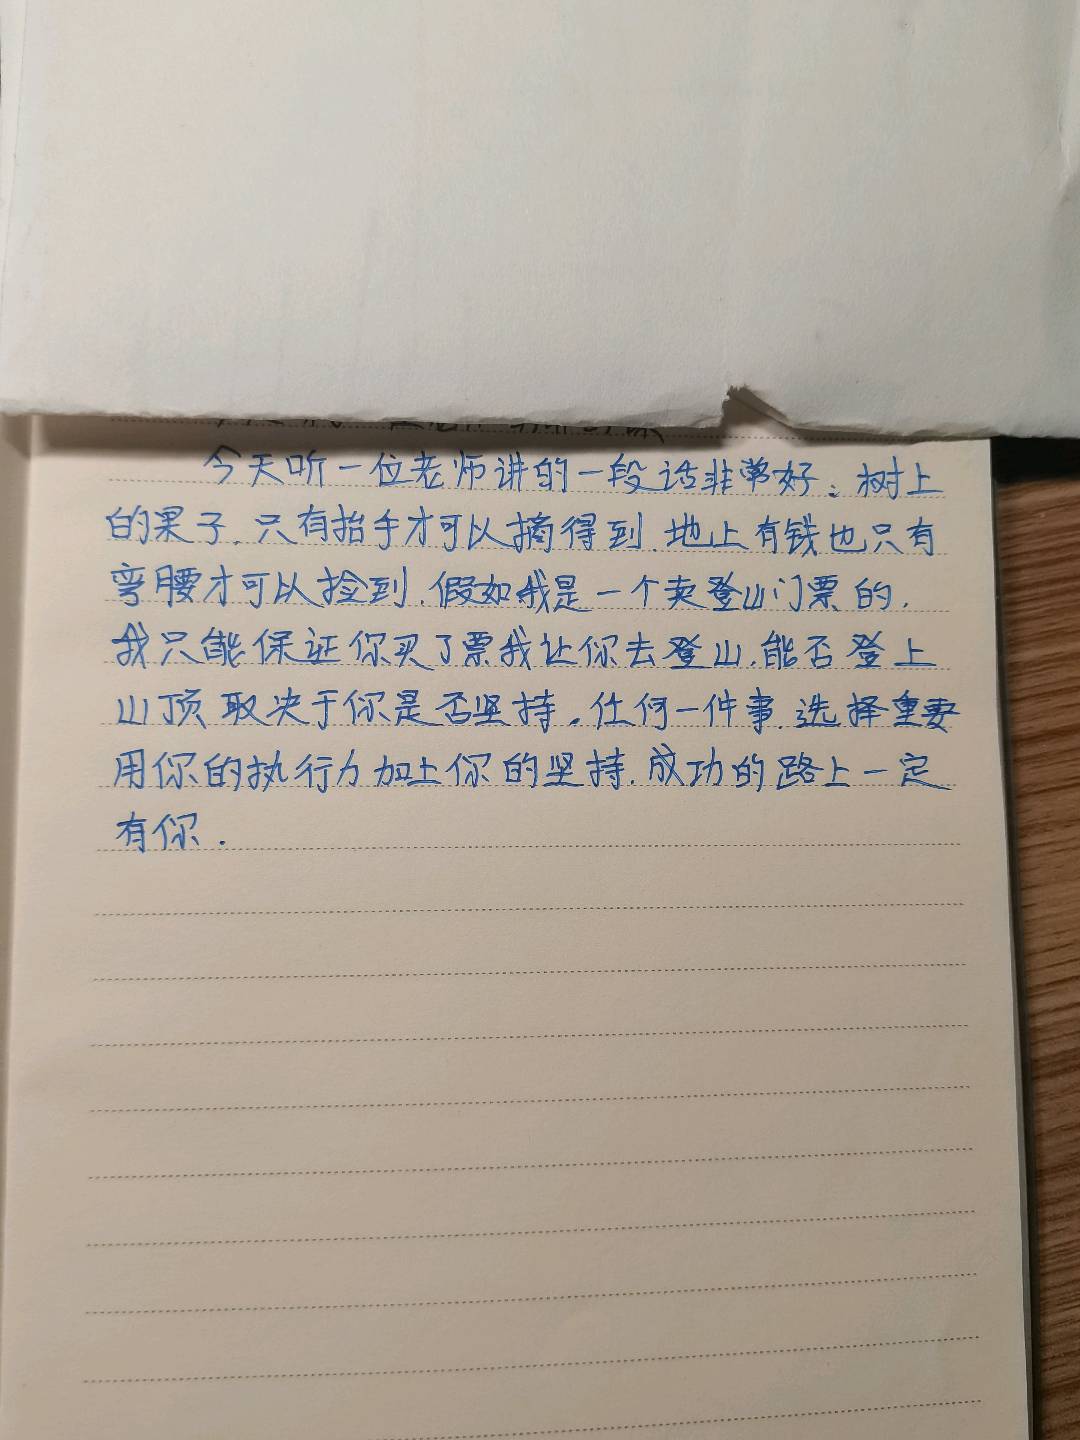 今天听一位老师讲的一段话非常好:树上
的果子.只有抬手才可以摘得到.地上有钱也只有
弯腰才可以捡到.假如我是一个卖登山门票的.
我只能保证你买了票我让你去登山.能否登上
山顶取决于你是否坚持.任何一件事.选择重要
用你的执行力加上你的坚持.成功的路上一定
有你.